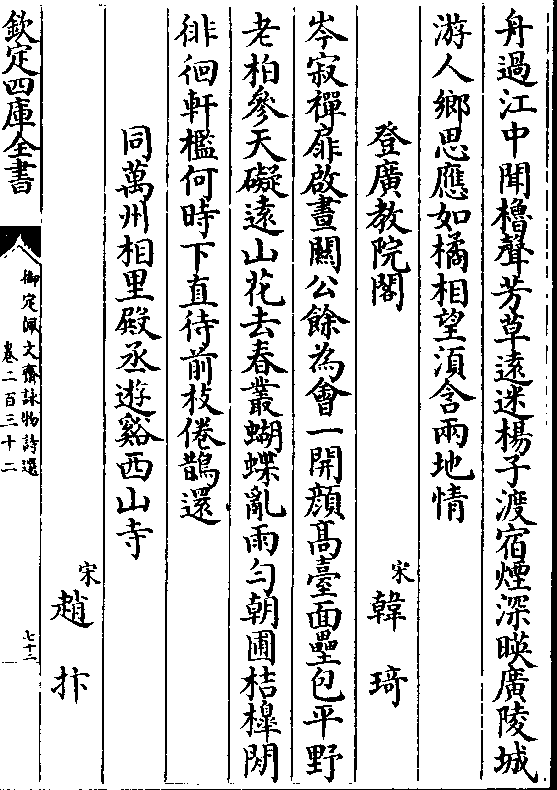 舟過江中聞櫓聲芳草遠迷楊子渡宿煙深暎廣陵城
游人鄉思應如橘相望湏含兩地情
登廣教院閣
宋韓琦
岑寂禪扉啟晝關公餘為會一開顔髙臺面壘包平野
老柏參天礙遠山花去春叢蝴蝶亂雨勻朝圃桔橰閒
徘徊軒檻何時下直待前枝倦鵲還
同萬州相里殿丞遊谿西山寺
宋趙抃
欽定四庫全書
御定佩文齋詠物詩選
卷二百三十二
七十二